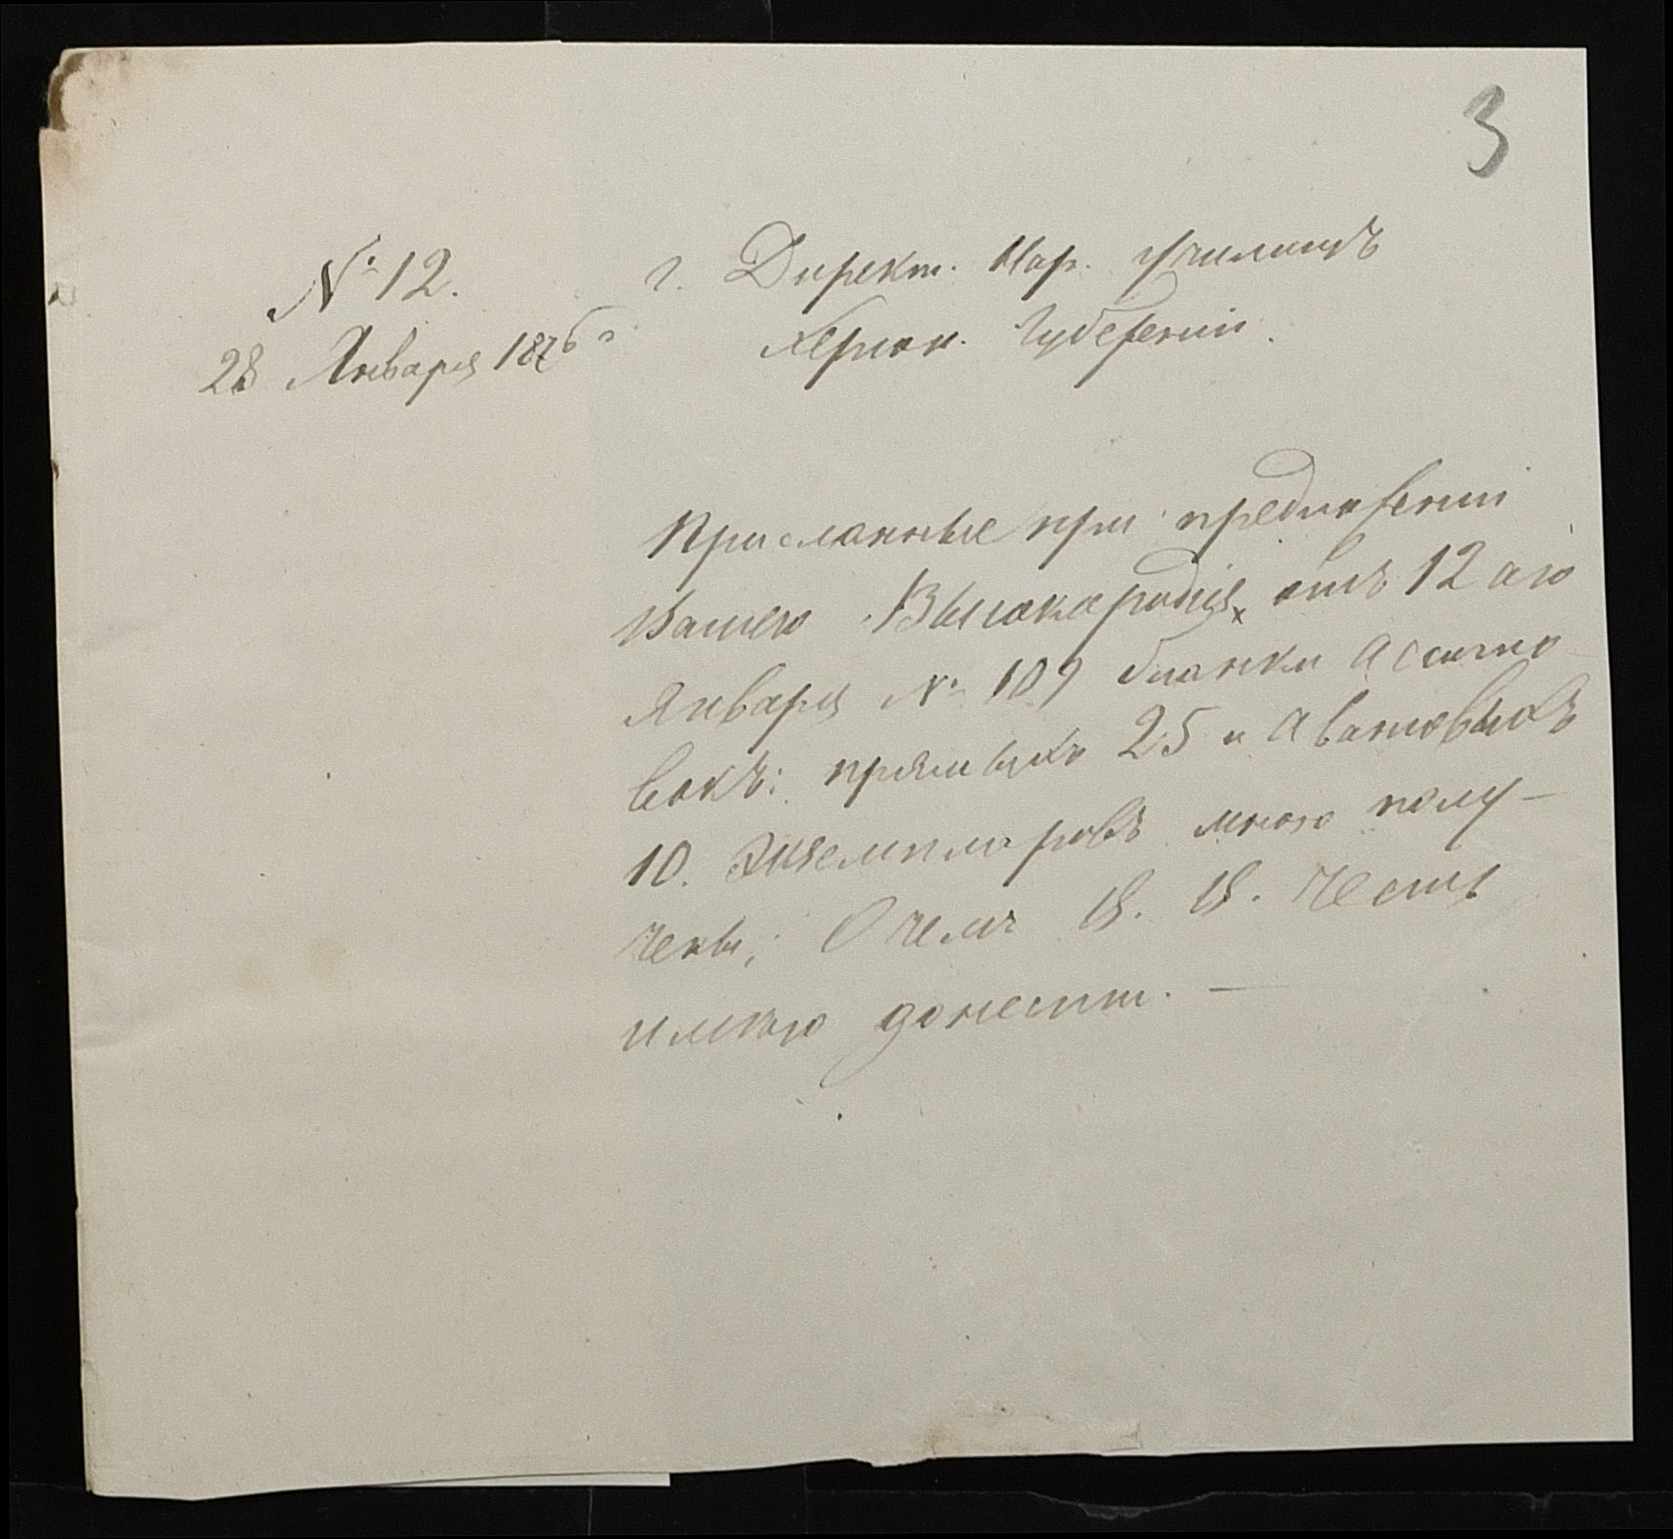 3
№ 12.
28 Января 1876 г
г. Директ. Нар. Училищъ
Херсон. Губерніи.
Присланные при предложеніи
Вашего Высокородія отъ 12 аго
Января № 109 бланки Ассигно
вокъ: прямыхъ 25 и Авансовыхъ
10. Экземпляровъ мною полу-
чены; О чемъ В. В. Честь
имѣю донести. —